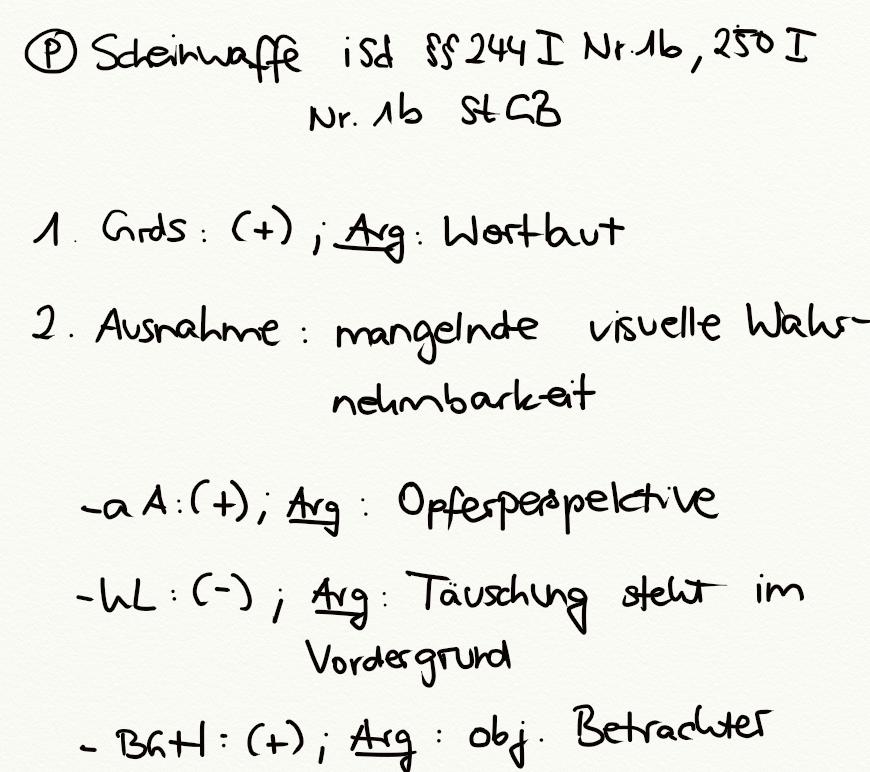 Ⓟ Scheinwaffe iSd §§ 244 I Nr. 1b, 250 I
Nr. 1b StGB
1. Grds: (+); Arg: Wortlaut
2. Ausnahme: mangelnde visuelle Wahr-
nehmbarkeit
- aA: (+); Arg: Opferperspektive
- hL: (-); Arg: Täuschung steht im
Vordergrund
- BGH: (+); Arg: obj. Betrachter